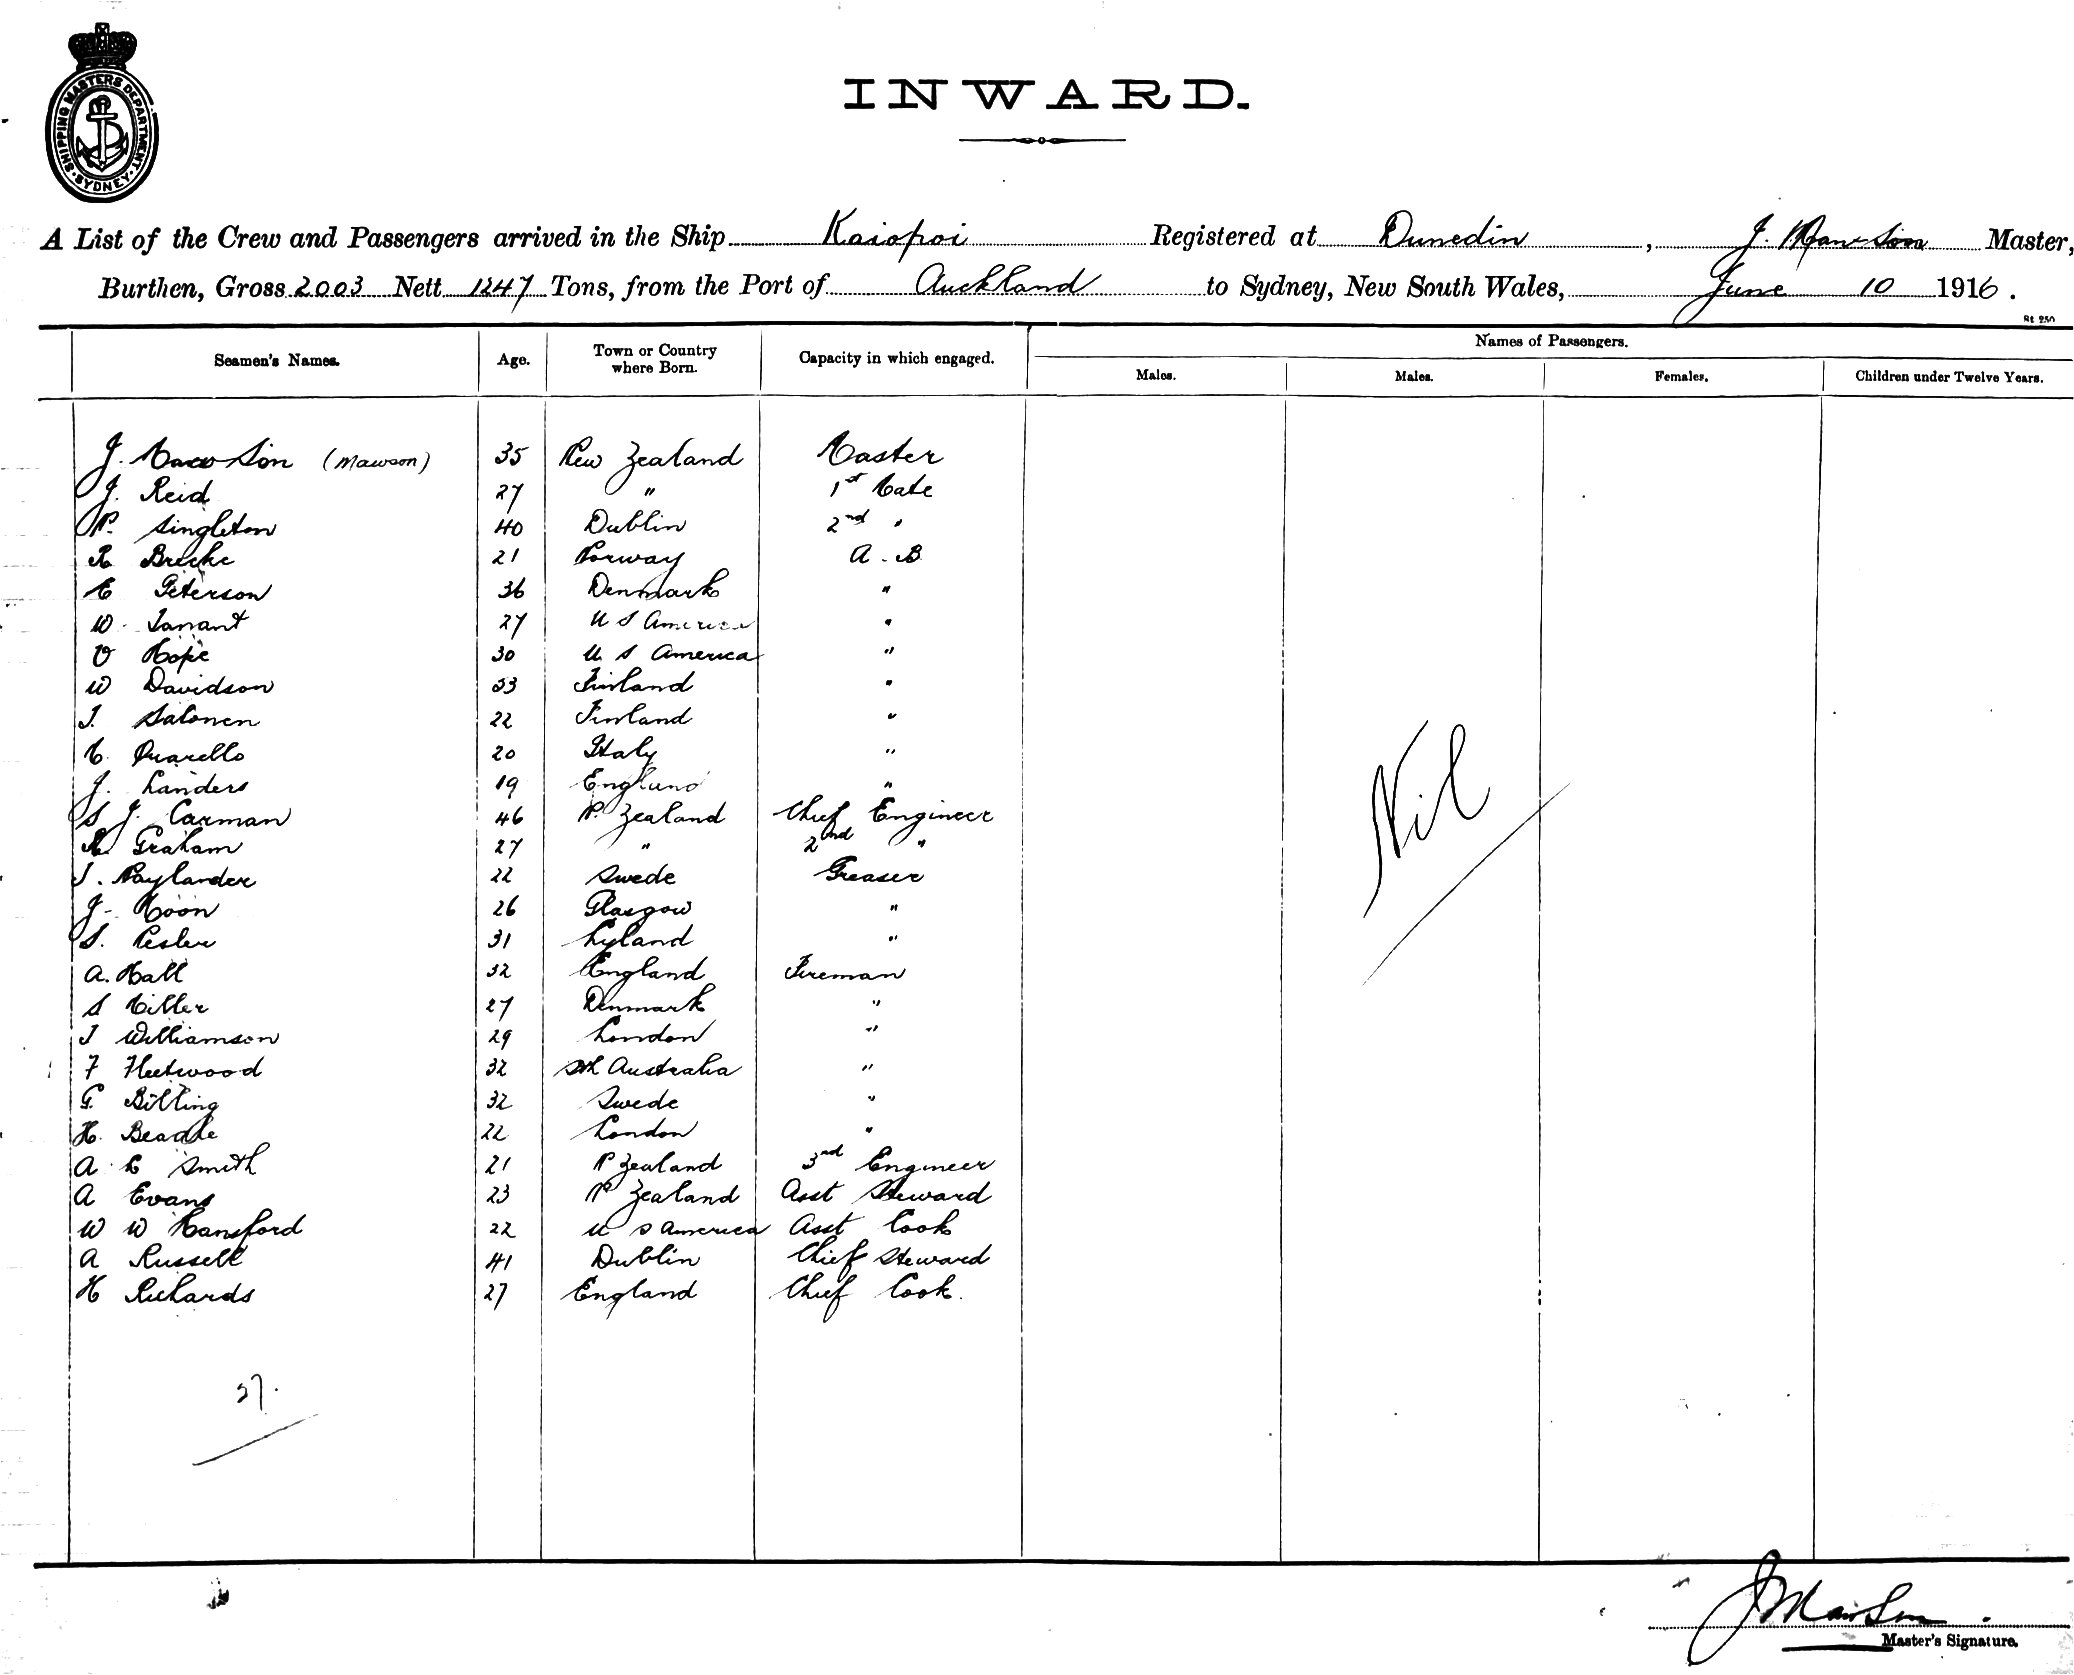 SHIPPING MASTERS DEPARTMENT · SYDNEY ·
INWARD.
A List of the Crew and Passengers arrived in the Ship Kaiapoi Registered at Dunedin, J. Mawson Master,
Burthen, Gross 2003 Nett 1247 Tons, from the Port of Auckland to Sydney, New South Wales, June 10 1916.
Seamen's Names. Age. Town or Country where Born. Capacity in which engaged. Names of Passengers.
Males. Males. Females. Children under Twelve Years.
J. Mawson (Mawson) 35 New Zealand Master
J. Reid 27 " 1st Mate
N. Singleton 40 Dublin 2nd "
R Brecke 21 Norway A.B
E Peterson 36 Denmark "
W. Tarrant 27 U S America "
O Hope 30 U S America "
W Davidson 53 Finland "
J. Salonen 22 Finland "
C. Quarello 20 Italy "
J. Landers 19 England "
S J. Carman 46 N. Zealand Chief Engineer
R. Graham 27 " 2nd "
J. Naylander 22 Swede Greaser
J. Moon 26 Glasgow "
S. 31 "
A. Hall 32 England Fireman
S Miller 27 Denmark "
J Williamson 29 London "
F Fleetwood 32 Sth Australia "
G. Billing 32 Swede "
H. Beadle 22 London "
A L Smith 21 N Zealand 3rd Engineer
A Evans 23 N Zealand Asst Steward
W W Hansford 22 U S America Asst Cook
A Russell 41 Dublin Chief Steward
H Richards 27 England Chief Cook.
Nil
27.
J Mawson.
Master's Signature.